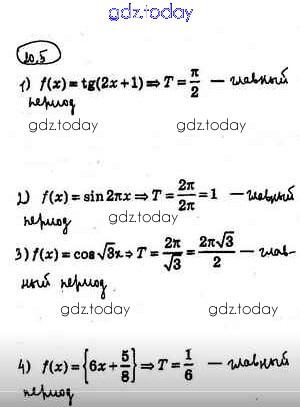 gdz.today
20.5
1) f(x) = tg(2x+1) ⇒ T = π/2 — главный
период
gdz.today gdz.today
2) f(x) = sin 2πx ⇒ T = 2π/2π = 1 — главный
период gdz.today
3) f(x) = cos √3x ⇒ T = 2π/√3 = 2π√3/2 — глав-
ный период
gdz.today gdz.today
4) f(x) = {6x + 5/8} ⇒ T = 1/6 — главный
период gdz.today